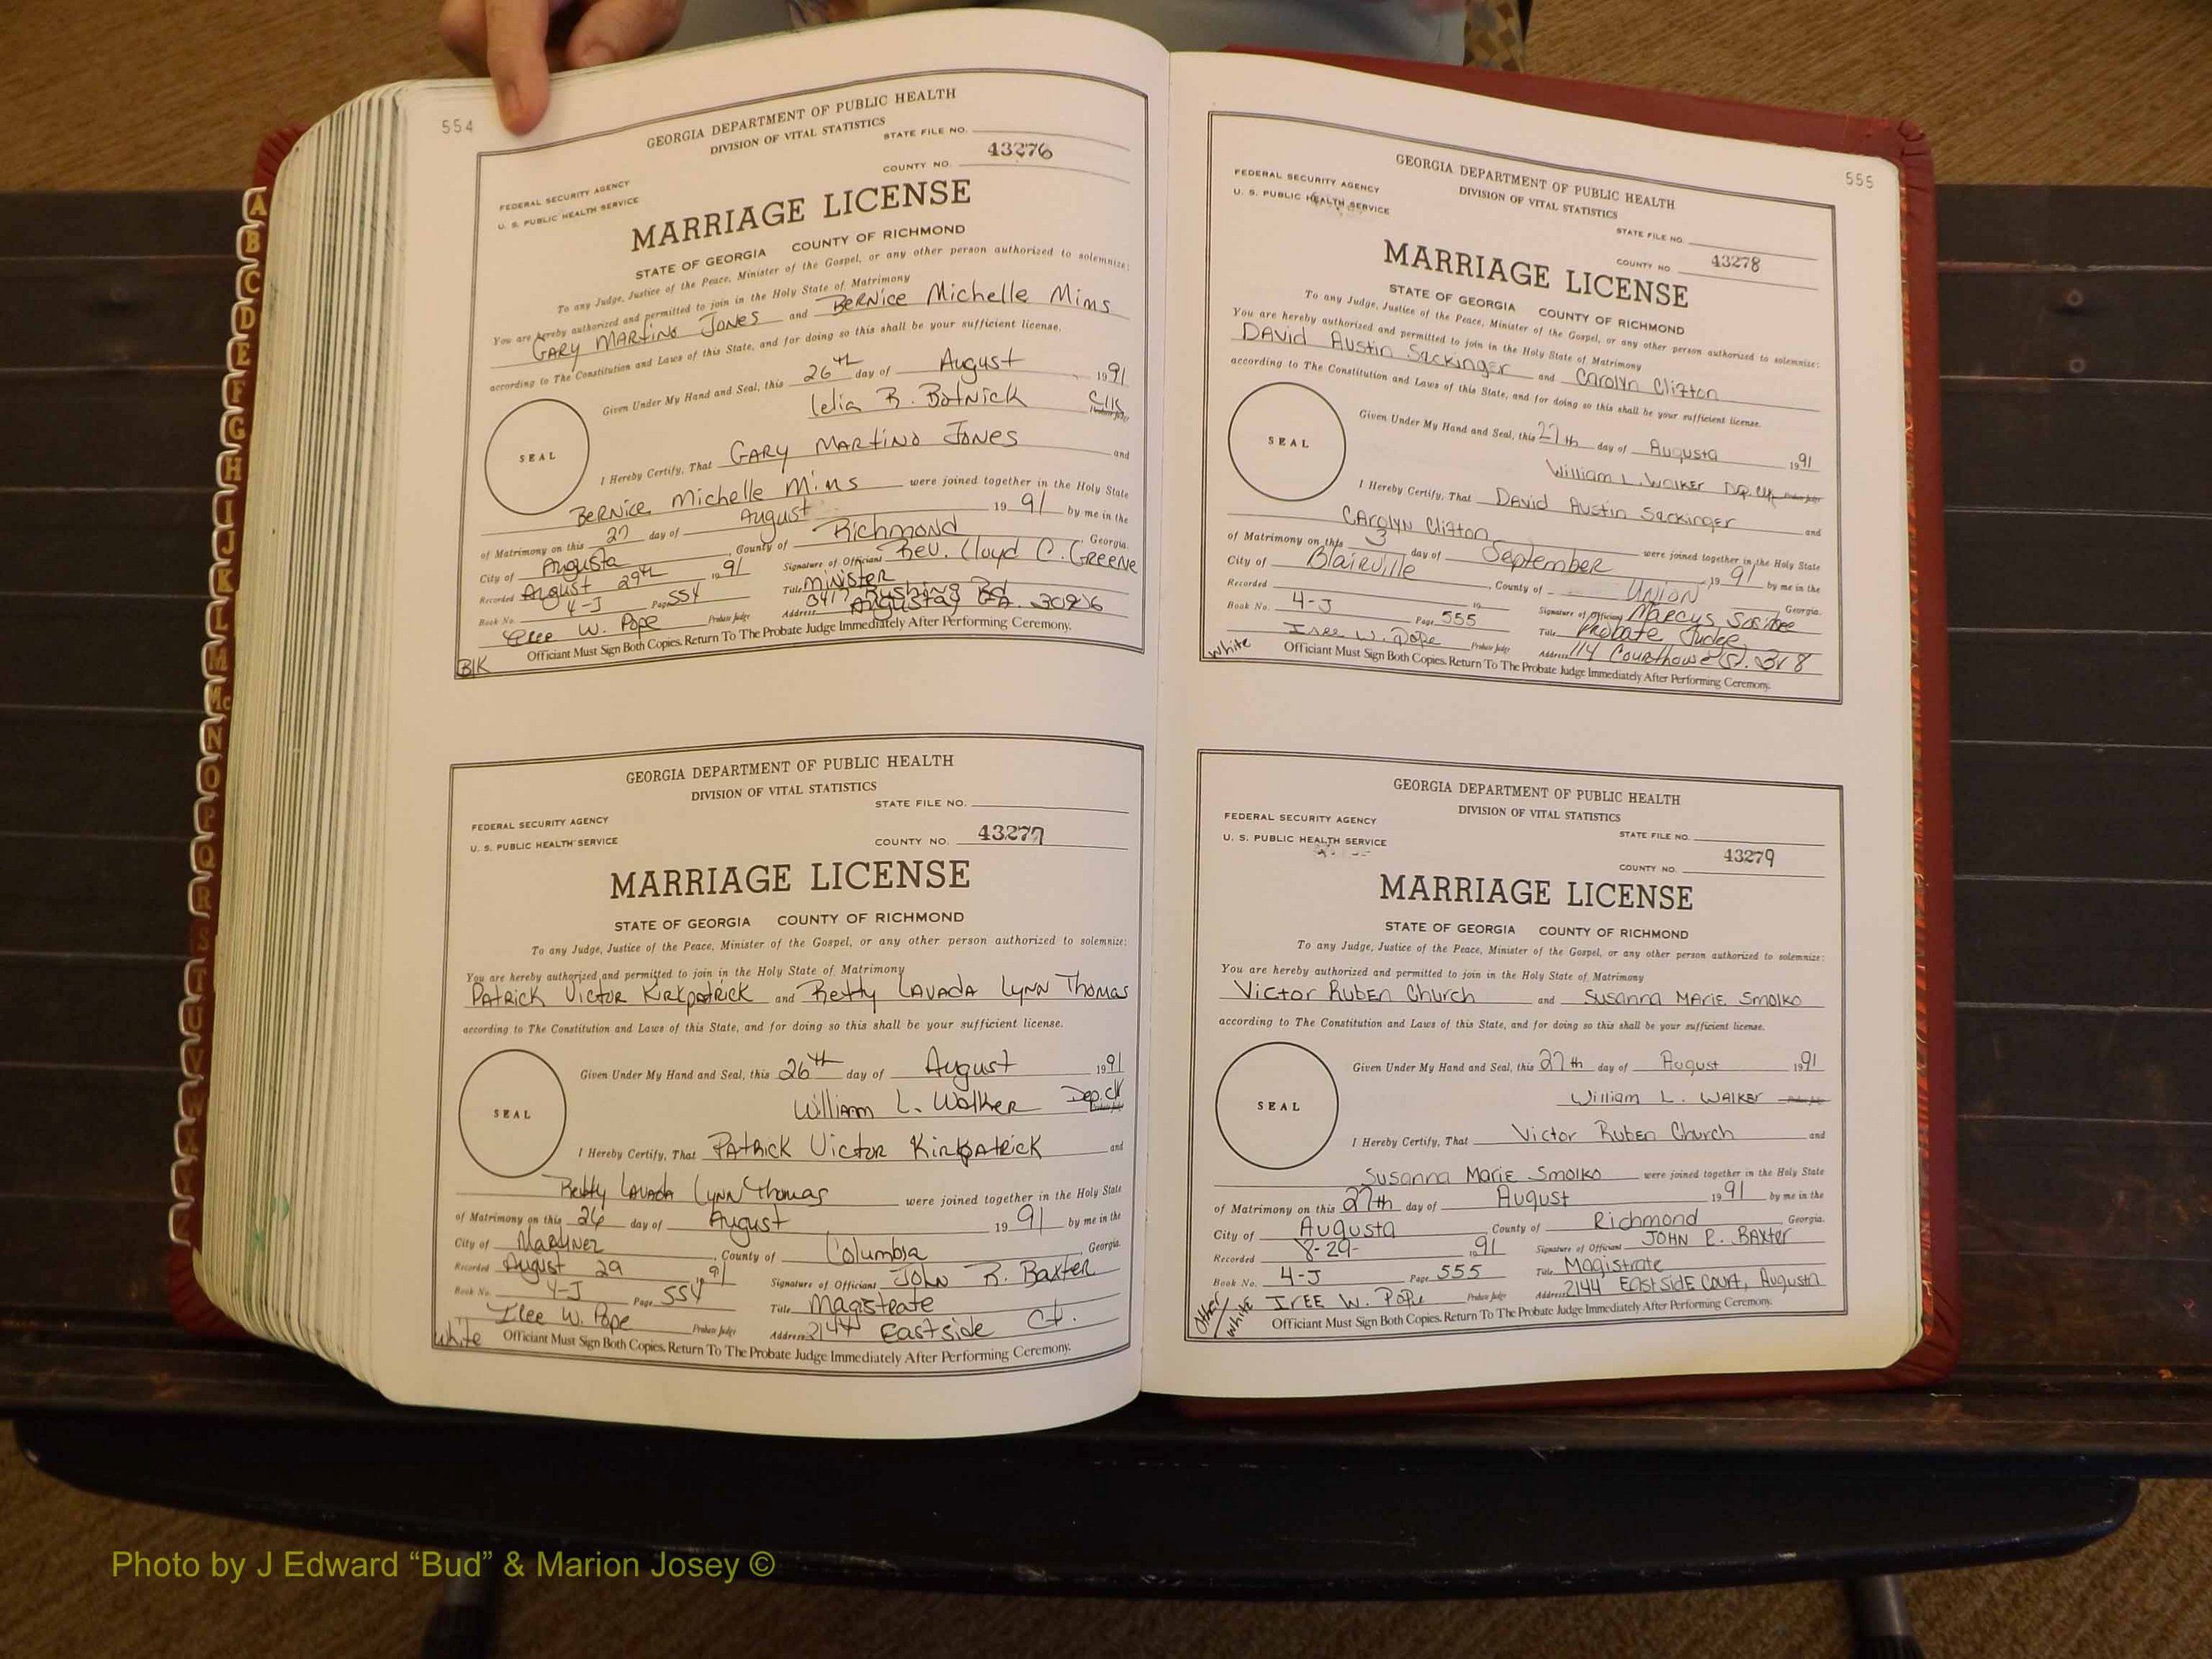 554
GEORGIA DEPARTMENT OF PUBLIC HEALTH
DIVISION OF VITAL STATISTICS
STATE FILE NO.
FEDERAL SECURITY AGENCY
U. S. PUBLIC HEALTH SERVICE
COUNTY NO. 43276
MARRIAGE LICENSE
STATE OF GEORGIA COUNTY OF RICHMOND
To any Judge, Justice of the Peace, Minister of the Gospel, or any other person authorized to solemnize:
You are hereby authorized and permitted to join in the Holy State of Matrimony
GARY MARTINO JONES and BERNICE Michelle Mims
according to The Constitution and Laws of this State, and for doing so this shall be your sufficient license.
Given Under My Hand and Seal, this 26th day of August 1991
Lelia R. Botnick Clk
SEAL
I Hereby Certify, That GARY MARTINO JONES and
BERNICE Michelle Mims were joined together in the Holy State
of Matrimony on this 27 day of August 1991 by me in the
City of Augusta, County of Richmond, Georgia.
Recorded August 29th 1991 Signature of Official Rev. Lloyd C. GREENE
Book No. 4-J Page 554 Title Minister
Address 3417 Rushing Rd
Augusta, GA.
W. Pope Probate Judge
Officiant Must Sign Both Copies. Return To The Probate Judge Immediately After Performing Ceremony.
Blk
GEORGIA DEPARTMENT OF PUBLIC HEALTH
DIVISION OF VITAL STATISTICS
STATE FILE NO.
FEDERAL SECURITY AGENCY
U. S. PUBLIC HEALTH SERVICE
COUNTY NO. 43277
MARRIAGE LICENSE
STATE OF GEORGIA COUNTY OF RICHMOND
To any Judge, Justice of the Peace, Minister of the Gospel, or any other person authorized to solemnize:
You are hereby authorized and permitted to join in the Holy State of Matrimony
PATRICK VICTOR KIRKPATRICK and Betty LAVADA LYNN Thomas
according to The Constitution and Laws of this State, and for doing so this shall be your sufficient license.
Given Under My Hand and Seal, this 26th day of August 1991
William L. Walker Dep. Clk
SEAL
I Hereby Certify, That PATRICK VICTOR KIRKPATRICK and
Betty LAVADA LYNN Thomas were joined together in the Holy State
of Matrimony on this 26 day of August 1991 by me in the
City of Martinez, County of Columbia Georgia.
Recorded August 29 1991 Signature of Official John R. Baxter
Book No. 4-J Page 554 Title Magistrate
W. Pope Probate Judge Address 2144 Eastside Ct.
White
Officiant Must Sign Both Copies. Return To The Probate Judge Immediately After Performing Ceremony.
555
GEORGIA DEPARTMENT OF PUBLIC HEALTH
DIVISION OF VITAL STATISTICS
FEDERAL SECURITY AGENCY
U. S. PUBLIC HEALTH SERVICE
STATE FILE NO.
COUNTY NO 43278
MARRIAGE LICENSE
STATE OF GEORGIA COUNTY OF RICHMOND
To any Judge, Justice of the Peace, Minister of the Gospel, or any other person authorized to solemnize:
You are hereby authorized and permitted to join in the Holy State of Matrimony
David Austin Sackinger and Carolyn Clifton
according to The Constitution and Laws of this State, and for doing so this shall be your sufficient license.
Given Under My Hand and Seal, this 27th day of Augusta 1991
William L. Walker
SEAL
I Hereby Certify, That David Austin Sackinger and
Carolyn Clifton were joined together in the Holy State
of Matrimony on this 3 day of September 1991 by me in the
City of Blairville, County of Union Georgia.
Recorded 19 Signature of Official Marcus
Book No. 4-J Page 555 Title Probate Judge
W. Pope Probate Judge Address 114 Courthouse
White
Officiant Must Sign Both Copies. Return To The Probate Judge Immediately After Performing Ceremony.
GEORGIA DEPARTMENT OF PUBLIC HEALTH
DIVISION OF VITAL STATISTICS
FEDERAL SECURITY AGENCY
U. S. PUBLIC HEALTH SERVICE
STATE FILE NO.
COUNTY NO. 43279
MARRIAGE LICENSE
STATE OF GEORGIA COUNTY OF RICHMOND
To any Judge, Justice of the Peace, Minister of the Gospel, or any other person authorized to solemnize:
You are hereby authorized and permitted to join in the Holy State of Matrimony
Victor Ruben Church and Susanna Marie Smolko
according to The Constitution and Laws of this State, and for doing so this shall be your sufficient license.
Given Under My Hand and Seal, this 27th day of August 1991
William L. Walker
SEAL
I Hereby Certify, That Victor Ruben Church and
Susanna Marie Smolko were joined together in the Holy State
of Matrimony on this 27th day of August 1991 by me in the
City of Augusta County of Richmond, Georgia.
Recorded 8-29- 1991 Signature of Official JOHN R. BAXTER
Book No. 4-J Page 555 Title Magistrate
IREE W. POPE Probate Judge Address 2144 EASTSIDE COURT, Augusta
Other/White
Officiant Must Sign Both Copies. Return To The Probate Judge Immediately After Performing Ceremony.
A
B
C
D
E
F
G
H
I
J
K
L
M
Mc
N
O
P
Q
R
S
T
U
V
Photo by J Edward “Bud” & Marion Josey ©